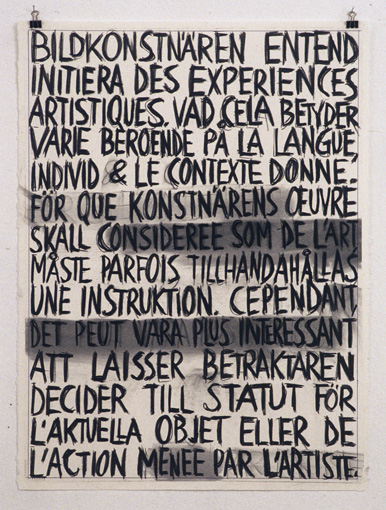 BILDKONSTNÄREN ENTEND
INITIERA DES EXPERIENCES
ARTISTIQUES. VAD CELA BETYDER
VARIE BEROENDE PÅ LA LANGUE,
INDIVID & LE CONTEXTE DONNE.
FÖR QUE KONSTNÄRENS ŒUVRE
SKALL CONSIDEREE SOM DE L'ART
MÅSTE PARFOIS TILLHANDAHÅLLAS
UNE INSTRUKTION. CEPENDANT,
DET PEUT VARA PLUS INTERESSANT
ATT LAISSER BETRAKTAREN
DECIDER TILL STATUT FÖR
L'AKTUELLA OBJET ELLER DE
L'ACTION MENEE PAR L'ARTISTE.